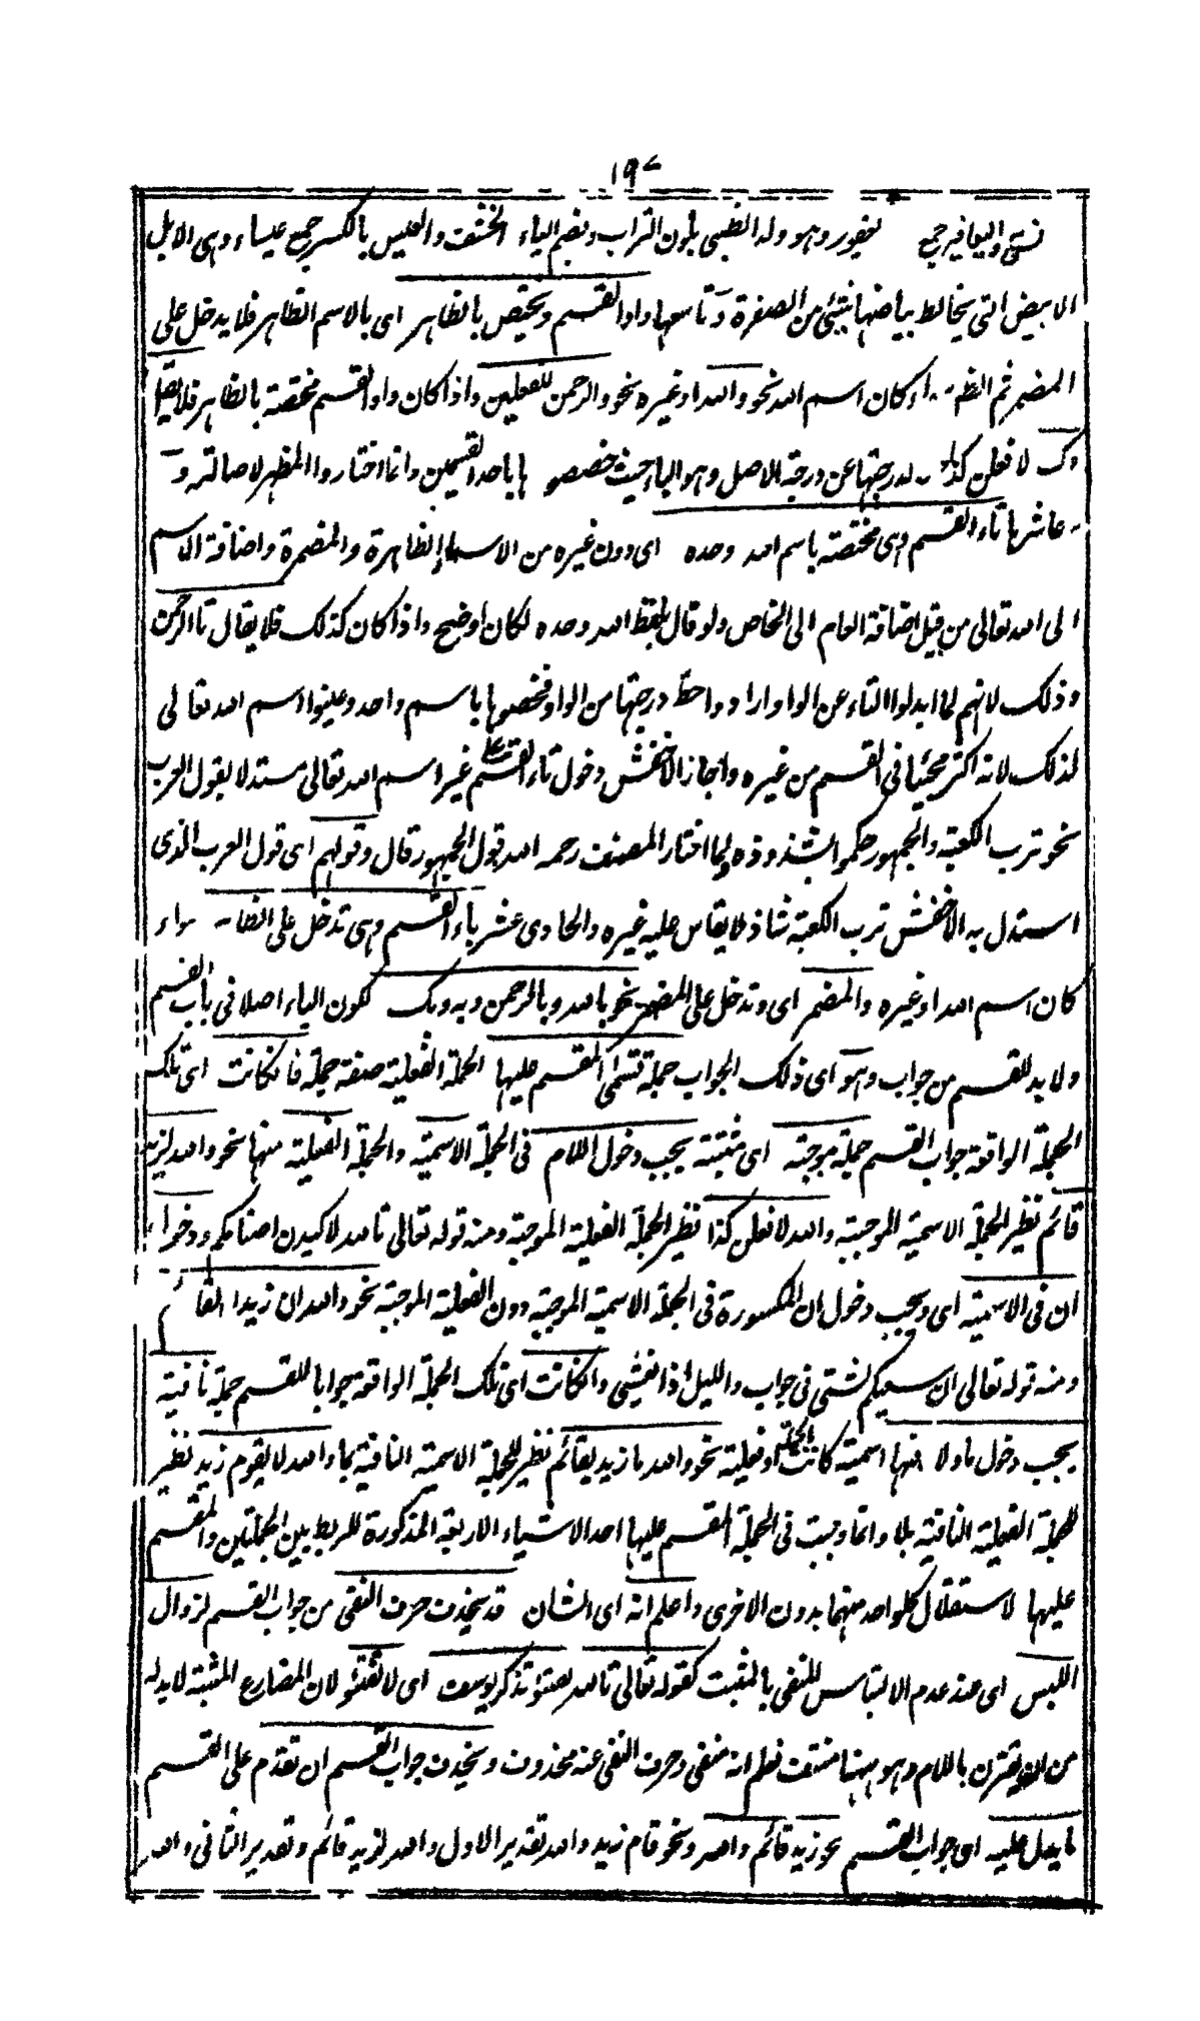 ١٩٧
نستى واليعافير جمع يعفور وهو ولد الظبى بلون التراب وبضم الياء الخشف والعيس بالكسر جمع عيساء وهى الابل
الابيض التى يخالط بياضها شئ من الصفرة وتاسعها واو القسم ويختص بالظاهر اى بالاسم الظاهر فلا يدخل على
المضمر ثم كان اسم الله نحو والله او غيره نحو والرحمن للفعلين واذا كان واو القسم مختصة بالظاهر فلا يقال
وك لا فعلن كذا لدرجتها عن درجة الاصل وهو الباء حيث خصصوها باحد القسمين وانما اختاروا المظهر لاصالته و
عاشرها تاء القسم وهى مختصة باسم الله وحده اى دون غيره من الاسماء الظاهرة والمضمرة واضافة الاسم
الى الله تعالى من قبيل اضافة العام الى الخاص ولو قال بلفظ الله وحده لكان اوضح واذا كان كذلك فلا يقال تا الرحمن
وذلك لانهم لما ابدلوا التاء عن الواو ارادوا حط درجتها من الواو فخصوها باسم واحد وعينوا اسم الله تعالى
لذلك لانه اكثر مجيئا فى القسم من غيره واجاز الاخفش دخول تاء القسم على غير اسم الله تعالى مستدلا بقول العرب
نحو ترب الكعبة والجمهور حكموا بشذوذه ولما اختار المصنف رحمه الله قول الجمهور قال وقولهم اى قول العرب الذى
استدل به الاخفش ترب الكعبة شاذ فلا يقاس عليه غيره والحادى عشر باء القسم وهى تدخل على الظاهر سواء
كان اسم الله او غيره والمضمر اى وتدخل على المضمر نحو بالله وبالرحمن وبه وبك لكون الباء اصلا فى باب القسم
ولا بد للقسم من جواب وهو اى ذلك الجواب جملة تسمى المقسم عليها الجملة الفعلية صفة جملة فان كانت اى تلك
الجملة الواقعة جواب القسم جملة موجبة اى مثبتة يجب دخول اللام فى الجملة الاسمية والجملة الفعلية منها نحو والله لزيد
قائم نظير الجملة الاسمية الموجبة والله لافعلن كذا نظير الجملة الفعلية الموجبة ومنه قوله تعالى تالله لاكيدن اصنامكم ودخول
ان فى الاسمية اى ويجب دخول ان المكسورة فى الجملة الاسمية الموجبة دون الفعلية الموجبة نحو والله ان زيدا القائم
ومنه قوله تعالى ان سعيكم لشتى فى جواب والليل اذا يغشى وان كانت اى تلك الجملة الواقعة جوابا للقسم جملة نافية
يجب دخول ما ولا فيها اسمية كانت الجملة او فعلية نحو والله ما زيد بقائم نظير للجملة الاسمية النافية بما والله لا يقوم زيد نظير
للجملة الفعلية النافية بلا وانما وجبت فى الجملة المقسم عليها احد الاشياء الاربعة المذكورة للربط بين الجملتين والمقسم
عليها لاستقلال كل واحد منهما بدون الاخرى واعلم انه اى الشان قد يحذف حرف النفى من جواب القسم لزوال
اللبس اى عند عدم الالتباس للنفى بالمثبت كقوله تعالى تالله تفتؤ تذكر يوسف اى لا تفتؤ لان المضارع المثبة لا بد له
من ان يقترن باللام وهو ههنا منتف فعلم انه منفى وحرف النفى عنه محذوف ويحذف جواب القسم ان تقدم على القسم
ما يدل عليه اى جواب القسم نحو زيد قائم والله ونحو قام زيد والله تقدير الاول والله لزيد قائم وتقدير الثانى والله